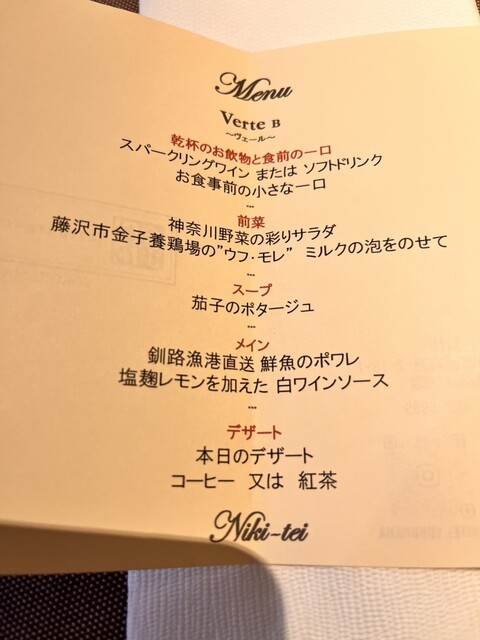 Menu
Verte B
～ヴェール～
乾杯のお飲物と食前の一口
スパークリングワイン または ソフトドリンク
お食事前の小さな一口
...
前菜
神奈川野菜の彩りサラダ
藤沢市金子養鶏場の"ウフ・モレ" ミルクの泡をのせて
...
スープ
茄子のポタージュ
...
メイン
釧路漁港直送 鮮魚のポワレ
塩麹レモンを加えた 白ワインソース
...
デザート
本日のデザート
コーヒー 又は 紅茶
Niki-tei